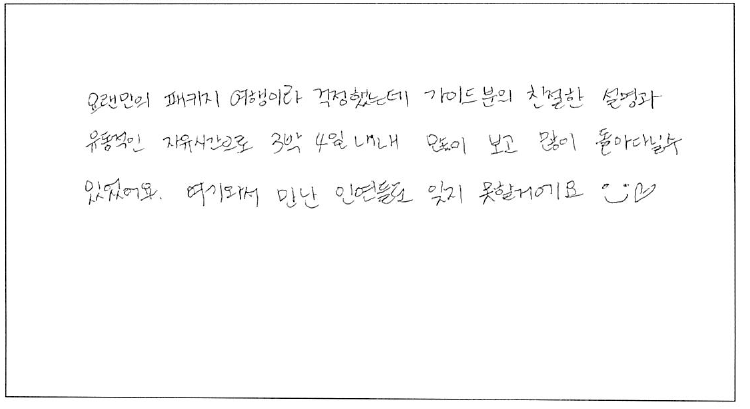 오랜만의 패키지 여행이라 걱정했는데 가이드분의 친절한 설명과
유동적인 자유시간으로 3박 4일 내내 많이 보고 많이 돌아다닐수
있었어요. 여기와서 만난 인연들도 잊지 못할거에요